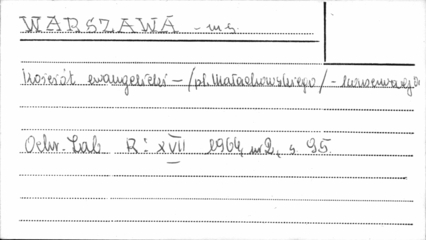 WARSZAWA - m s
Kościół ewangelicki - /pl. Małachowskiego/ - konserwacja
Ochr. Zab. R: XVII 1964, nr 2, s. 95.